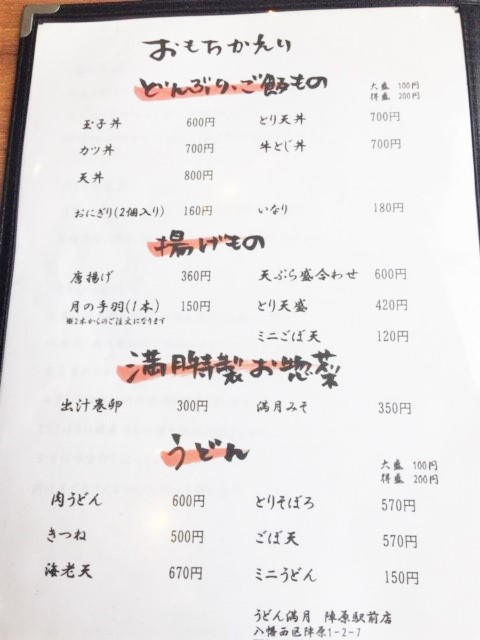 おもちかえり
どんぶり、ご飯もの
大盛 100円
得盛 200円
玉子丼 600円 とり天丼 700円
カツ丼 700円 牛とじ丼 700円
天丼 800円
おにぎり(2個入り) 160円 いなり 180円
揚げもの
唐揚げ 360円 天ぷら盛合わせ 600円
月の手羽(1本) 150円 とり天盛 420円
※2本からのご注文になります
ミニごぼ天 120円
満月特製お惣菜
出汁巻卵 300円 満月みそ 350円
うどん
大盛 100円
得盛 200円
肉うどん 600円 とりそぼろ 570円
きつね 500円 ごぼ天 570円
海老天 670円 ミニうどん 150円
うどん満月 陣原駅前店
八幡西区陣原1-2-7